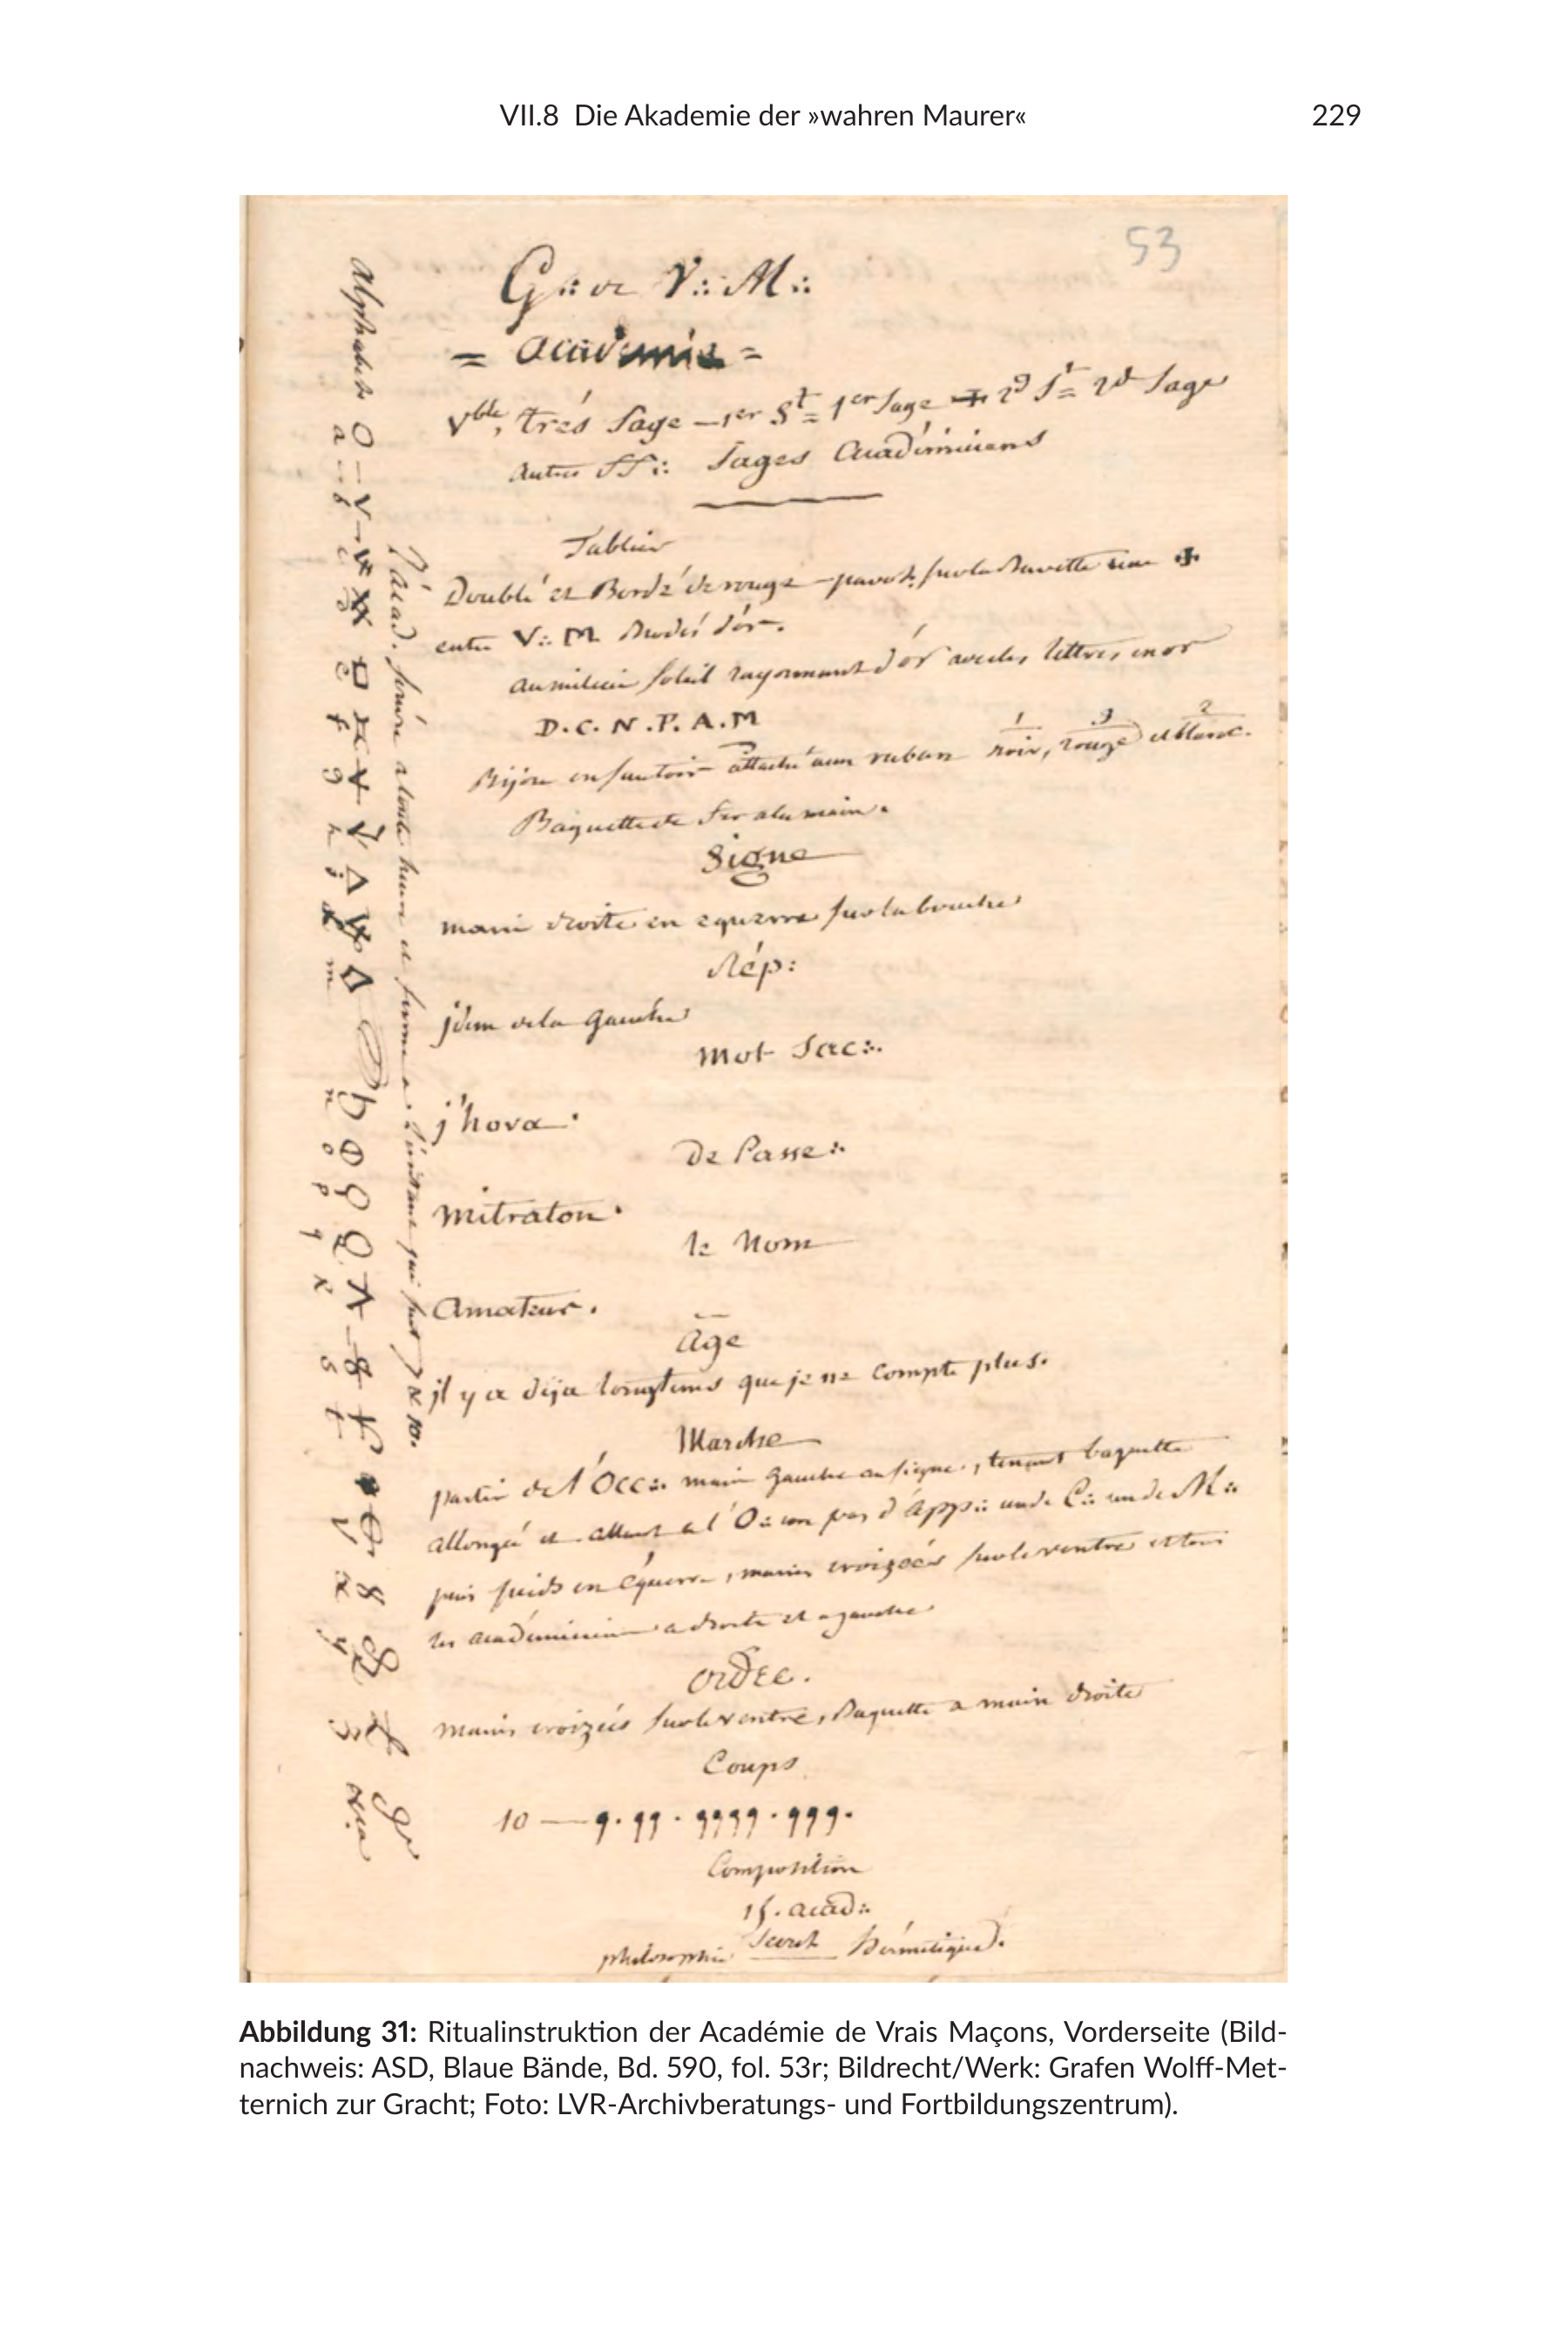 VII.8 Die Akademie der »wahren Maurer« 229
53
G∴ de V∴ M∴
= academie =
Vble, trés Sage — 1er St = 1er Sage 2d St = 2d Sage
autres ff∴ Sages académiciens
Tablier
Doublé et Bordé de rouge — sur la Bavette une ✠
entre V∴ M Brodés d'or.
au milieu soleil rayonnant d'or avec les lettres en or
D. C. N. P. A. M
Bijou en sautoir attaché a un ruban noir, rouge et blanc.
1 3 2
Baguette de fer a la main.
Signe
main droite en equerre sur la bouche
Rép:
jdem de la gauche
mot Sac∴
j'hova.
De Passe∴
mitraton.
le Nom
Amateur.
âge
jl y a deja longtems que je ne compte plus.
Marche
partir de l'Occ∴ main gauche au signe, tenant baguette
allongée et allant a l'O∴ un pas d'App∴ un de C∴ un de M∴
puis pieds en équerre, mains croizées sur le ventre et
les académiciens a droite et a gauche
ordre.
mains croizées sur le ventre, Baguette a main droite
Coups
10 — 9. 99. 9999. 999.
Composition
15. acad∴
philosophie Secret hermétique.
alphabet
a c e f g h i m n o p q R s t V x y z &a
l'acad. fermée a toute heure et a l'instant qui suit 7 & 10.
Abbildung 31: Ritualinstruktion der Académie de Vrais Maçons, Vorderseite (Bild-
nachweis: ASD, Blaue Bände, Bd. 590, fol. 53r; Bildrecht/Werk: Grafen Wolff-Met-
ternich zur Gracht; Foto: LVR-Archivberatungs- und Fortbildungszentrum).